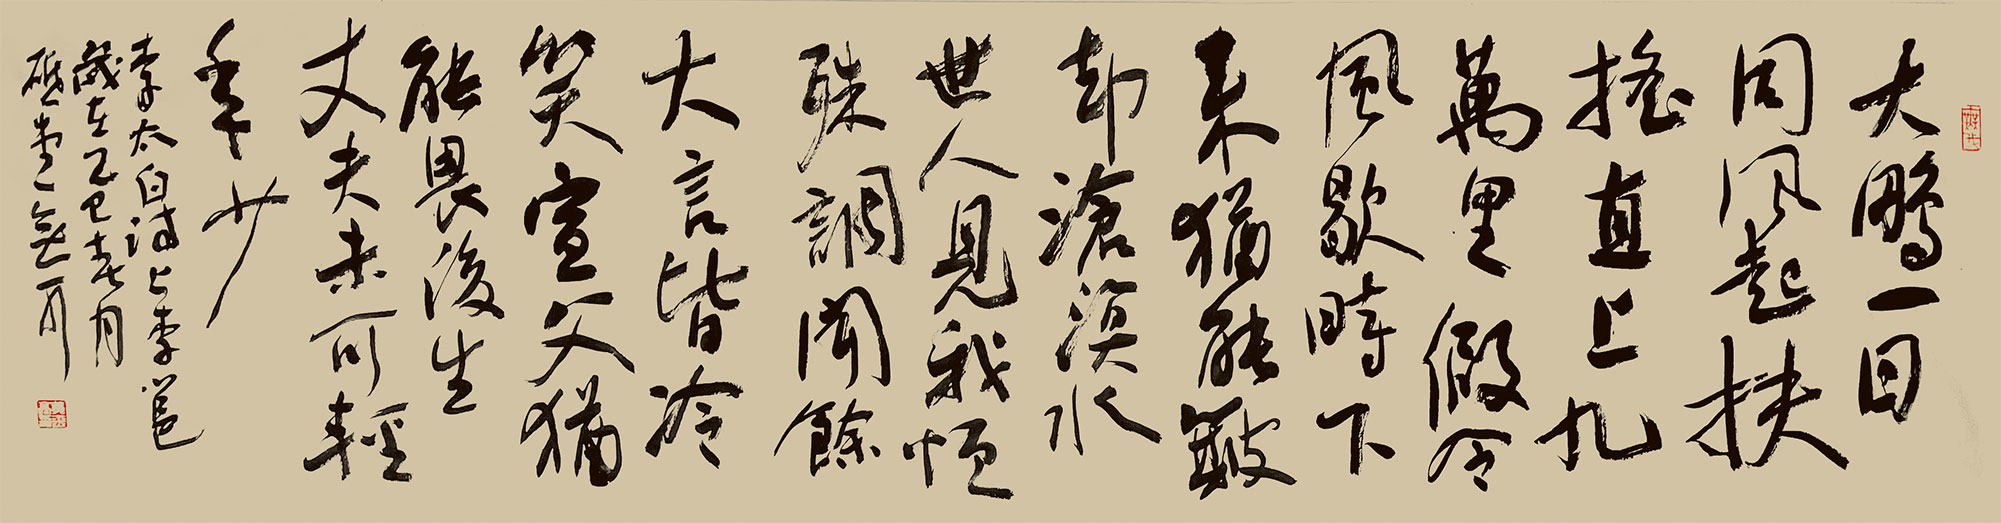 大鵬一日
同風起扶
搖直上九
萬里假令
風歇時下
來猶能簸
却滄溟水
世人見我恒
殊調聞餘
大言皆冷
笑宣父猶
能畏後生
丈夫未可輕
年少
李太白詩上李邕
歲在乙巳春月